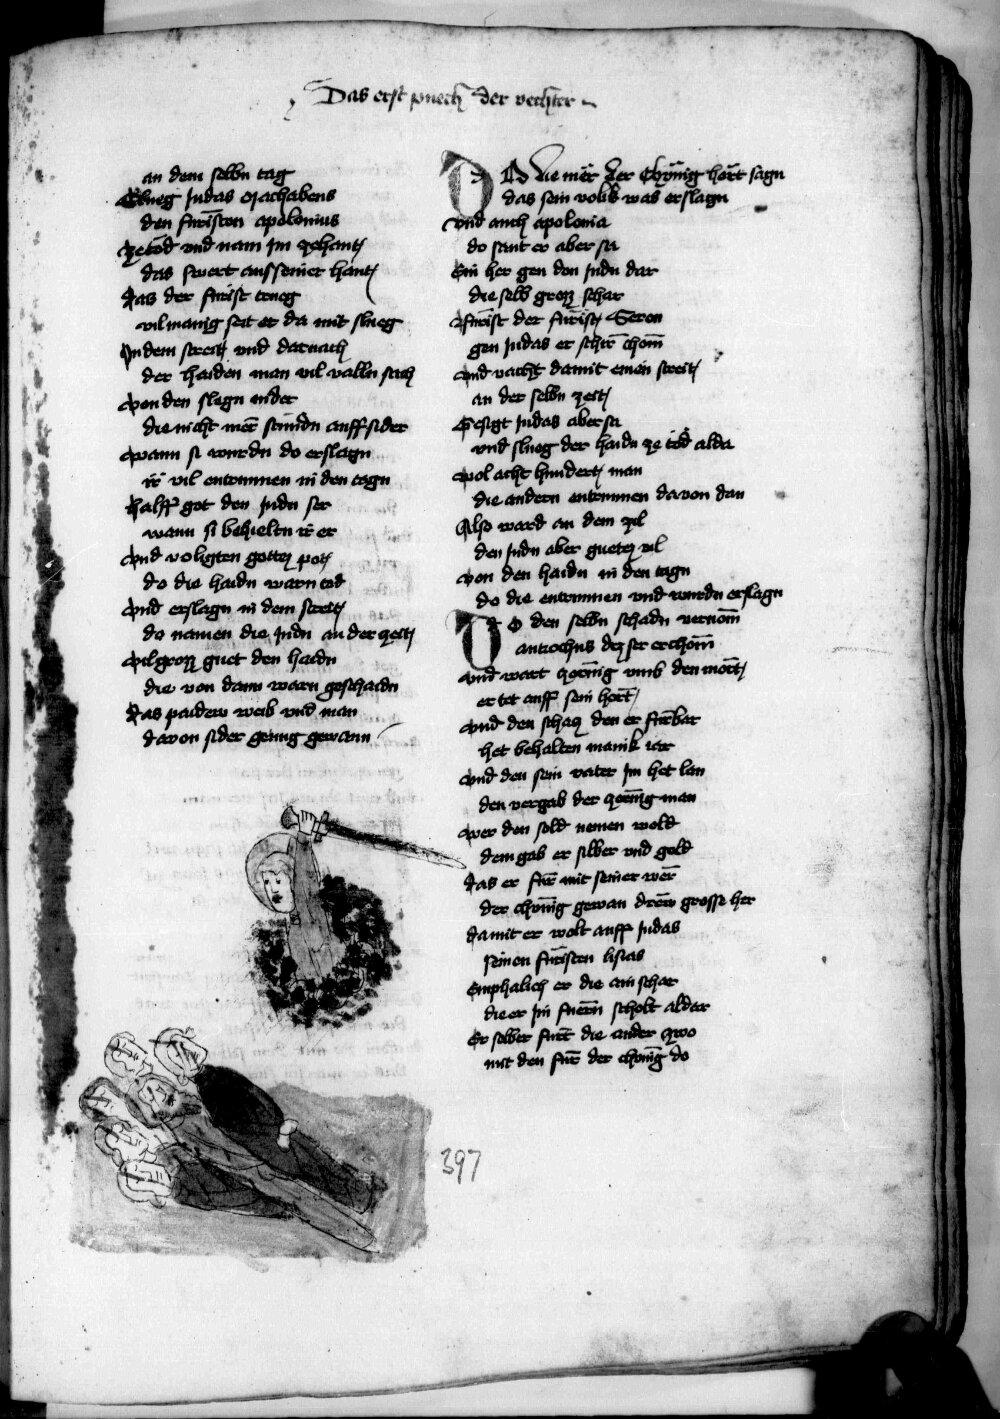 Das erst puech der vechter
an dem selbn tag
Slueg Judas Machabeus
den furisten apolonius
Ze tod vnd nam im zehant
das swert aus seiner hant
Das der fürist trueg
vil manig seit er da mit slueg
In dem streit vnd darnach
der haiden man vil valln sach
Von den slegn nider
die nicht mer stuindn auff sider
Wann si wurdn do erslagn
ir vil entrunnen in den tagn
Half got den Judn ser
wann si behieltn ir er
Vnd voligten gottez pot
do die haidn warn tod
Vnd erslagn in dem streit
do namen die Judn an der zeit
Vil grozz guet den haidn
die von dann warn geschaidn
Das paidew weib vnd man
davon sider genug gewann
DO die mer der Chunig hort sagn
das sein volkh was erslagn
Vnd auch apolonia
do sant er aber sa
Ein her gen den Judn dar
die selb grozz schar
Fürist der fürist Seron
gen Judas er schir chom
Vnd vacht damit einen streit
an der selbn zeit
Gesigt Judas aber sa
vnd slueg der haidn ze tod alda
Wol acht hundert man
die andern entrunnen davon dan
Also ward an dem zil
den Judn aber guetez vil
Von den haidn in den tagn
do die entrunnen vnd wurdn erslagn
DO den selbn schadn vernom
antiochus dez ser erchom
Vnd wart zoernig vmb den mort
er tet auff sein hort
Vnd den schaz den er fürbar
het behalten manik iar
Vnd den sein vater im het lan
den vergab der zoernig man
Wer den sold nemen wold
dem gab er silber vnd gold
Das er für mit seiner wer
der chunig gewan drew grosse her
Damit er wolt auff Judas
seinen furisten lisias
Emphalich er die ain schar
die er im fuern scholt aldar
Er selber furt die ander zwo
mit den fur der chunig do
397